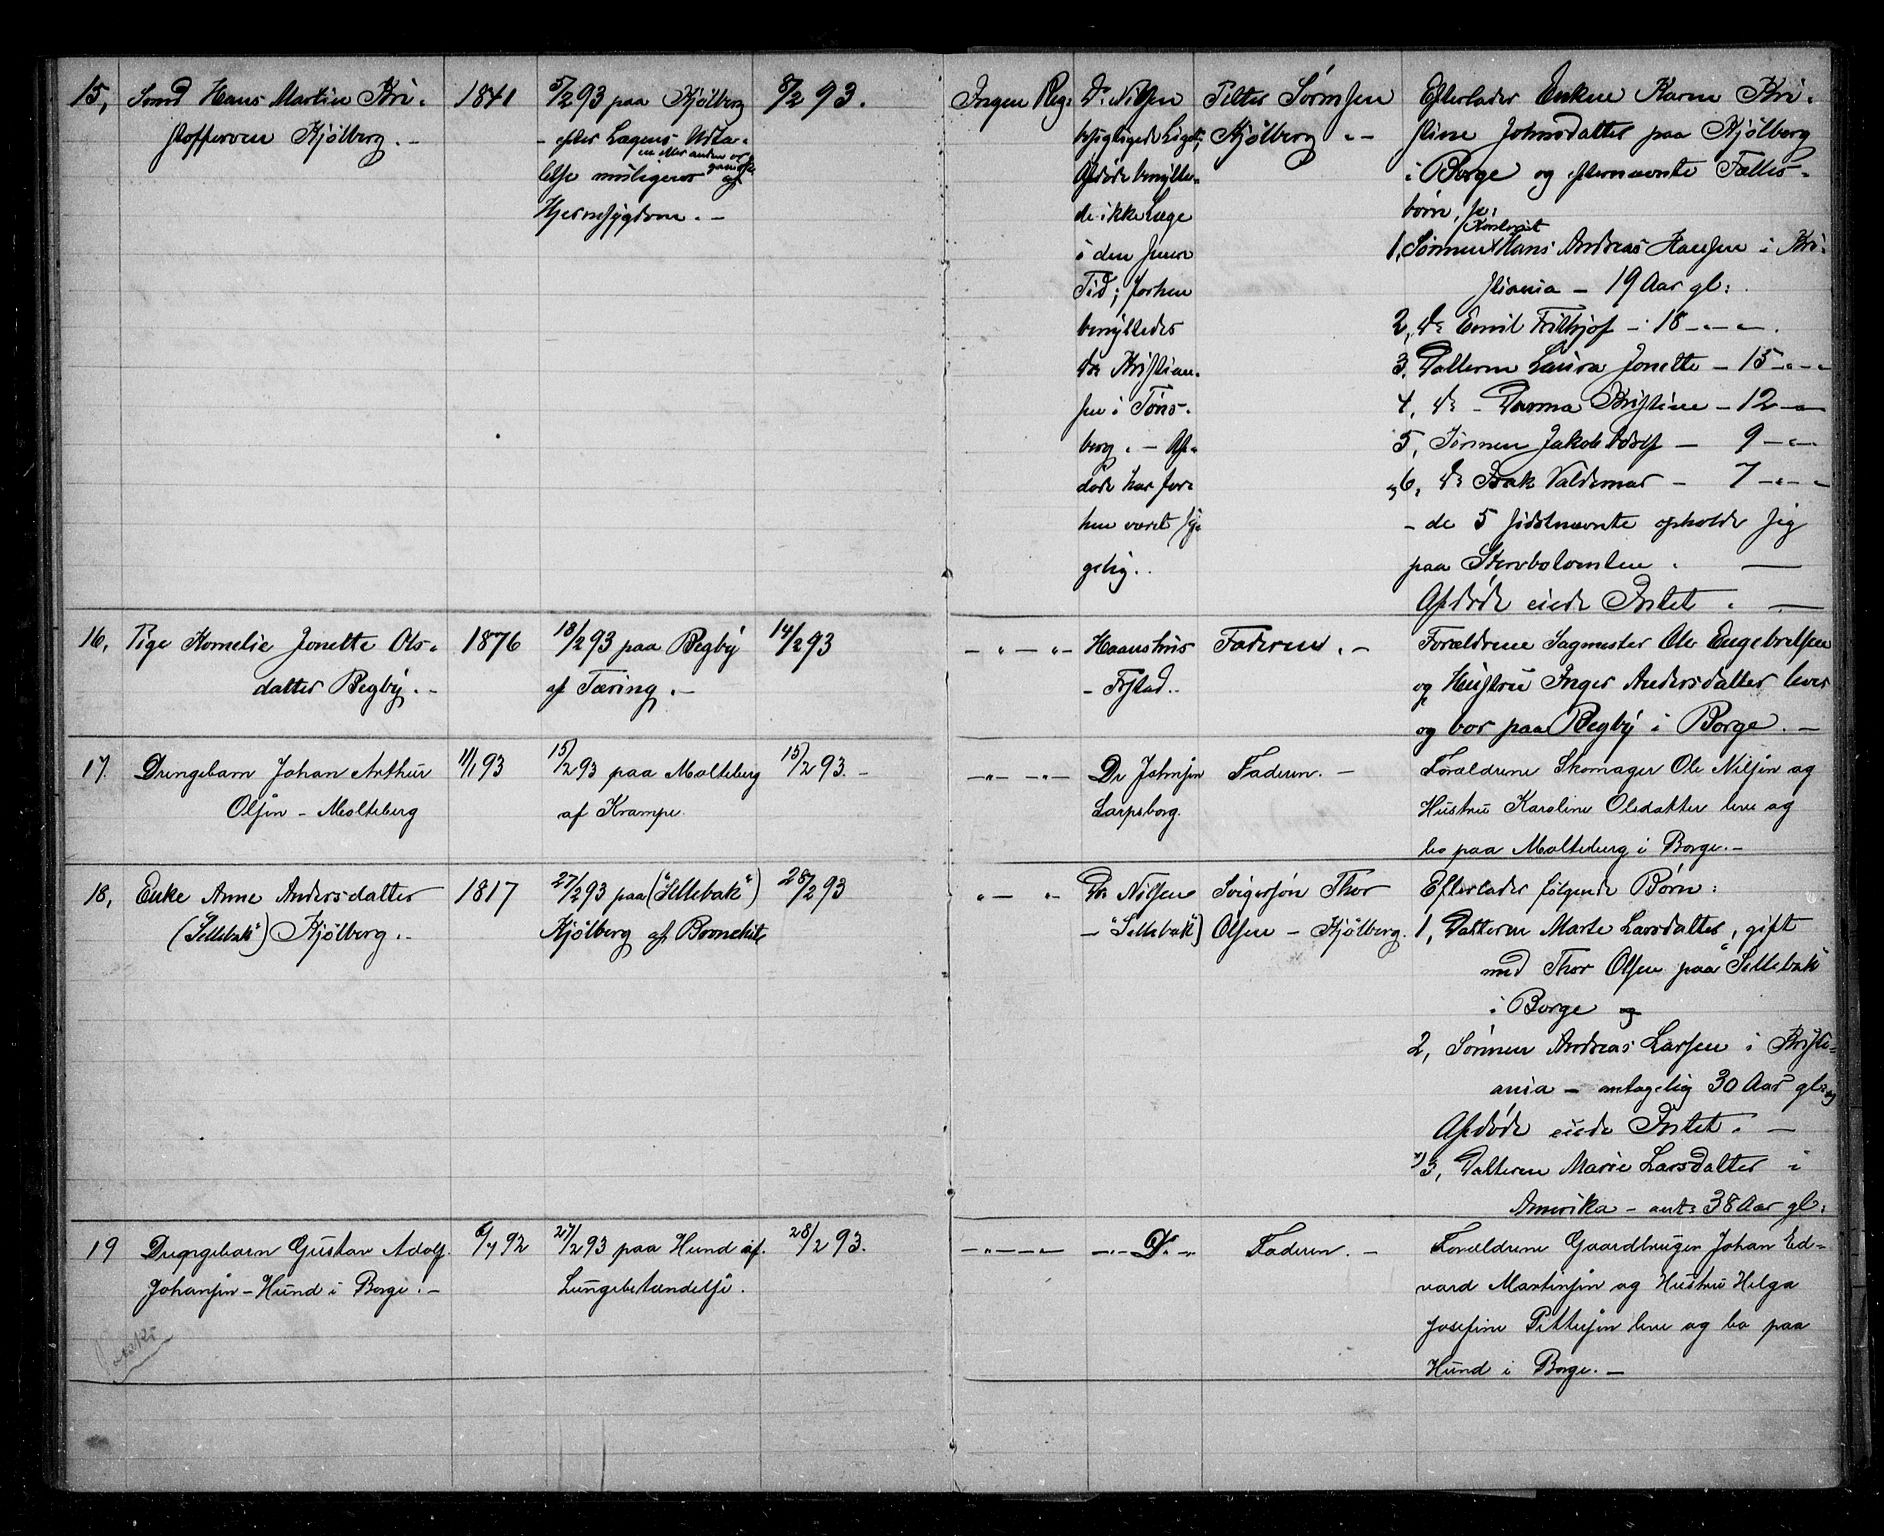 15, Smed Hans Martin Kri-
stoffersen Kjölberg. -
1841
5/2 93 paa Kjölberg
- efter Lægens Udta-
en eller anden or
lelse muligens ganisk
af
Hjernesygdom. -
8/2 93.
Ingen Reg:
Dr. Nilsen
besigtigede Liget;
Afdøde benytte-
de ikke Læge
i den senere
Tid; forhen
benyttedes
Dr Kristian-
sen i Tøns-
berg. - Af-
døde har for-
hen været sy-
gelig..
Petter Sörensen
Kjölberg
Efterlader Enken Karen Kri-
stine Johnsdatter paa Kjölberg
i Borge og efternævnte Fælles-
børn,
Konstverist
1, Sønnen Hans Andreas Hansen i Kri-
stiania - 19 Aar gl:
2, do Emil Frithjof - 18 - " -
3, Datteren Laura Jonette - 15 - " -
4, do - Dorma Kristine - 12 - " -
5, Sønnen Jakob Adolf - 9 - " -
og 6, do Isak Valdemar - 7 - " -
- de 5 sidstnævnte opholde sig
paa Stervbotomten. -
Afdöde eiede Intet. -
16, Pige Kornelie Jonette Ols-
datter Begby. -
1876
10/2 93 paa Begby
af Tæring. -
14/2 93
- " - " -
Haanshus
- Fr.stad..
Faderen. -
Forældrene Sagmester Ole Engebretsen
og Hustru Inger Andersdatter lever
og bor paa Begby i Borge. -
17. Drengebarn Johan Arthur
Olsen - Molteberg
11/1 93
15/2 93 paa Molteberg
af Krampe.
15/2 93. -
- " - " -
Dr Johnsen
Sarpsborg.
Faderen. -
Forældrene Skomager Ole Nilsen og
Hustru Karoline Olsdatter leve og
bo paa Molteberg i Borge. -
18, Enke Anne Andersdatter
("Sellebak") Kjölberg. -
1817
27/2 93 paa ("Sellebak")
Kjölberg af Bronchite
28/2 93
" - " -
Dr. Nilsen
- "Sellebak")
Svigersøn Thor
Olsen - Kjölberg.
Efterlader følgende Børn:
1, Datteren Marte Larsdatter, gift
med Thor Olsen paa "Sellebak"
i Borge og
2, Sønnen Andreas Larsen i Kristi-
ania - antagelig 30 Aar gl: og
Afdöde eiede Intet. -
3, Datteren Marie Larsdatter i
Amerika - ant: 38 Aar gl:
19 Drengebarn Gustav Adolf
Johansen - Hund i Borge. -
6/7 92
27/2 93 paa Hund af
Lungebetændelse.
28/2 93.
- " - " -
- " - Do - " -
Faderen. -
Forældrene Gaardbruger Johan Ed-
vard Martinsen og Hustru Helga
Josefine Pettersen leve og bo paa
Hund i Borge. -